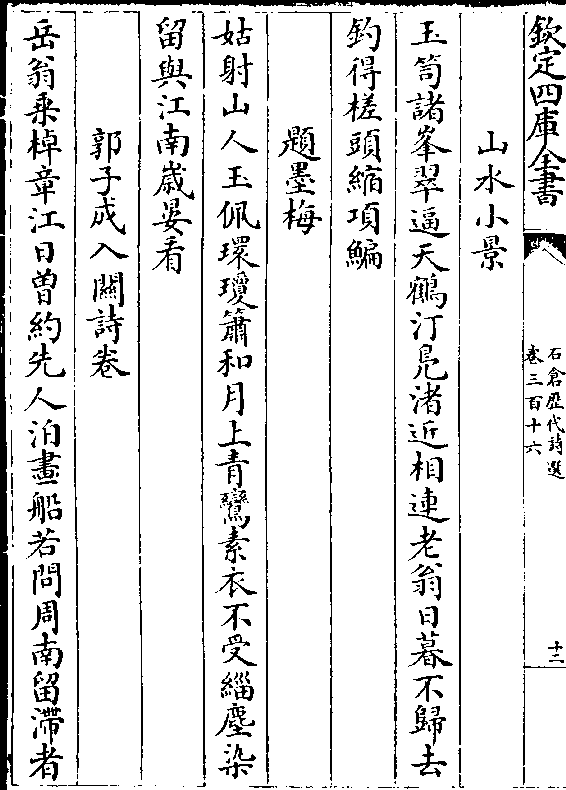 欽定四庫全書
石倉歷代詩選
卷三百十六
十二
山水小景
玉笥諸峯翠逼天鶴汀鳧渚近相連老翁日暮不歸去
釣得槎頭縮項鯿
題墨梅
姑射山人玉佩環瓊簫和月上青鸞素衣不受緇塵染
留與江南歲晏看
郭子成入關詩卷
岳翁乗棹章江日曽約先人泊畫船若問周南留滯者